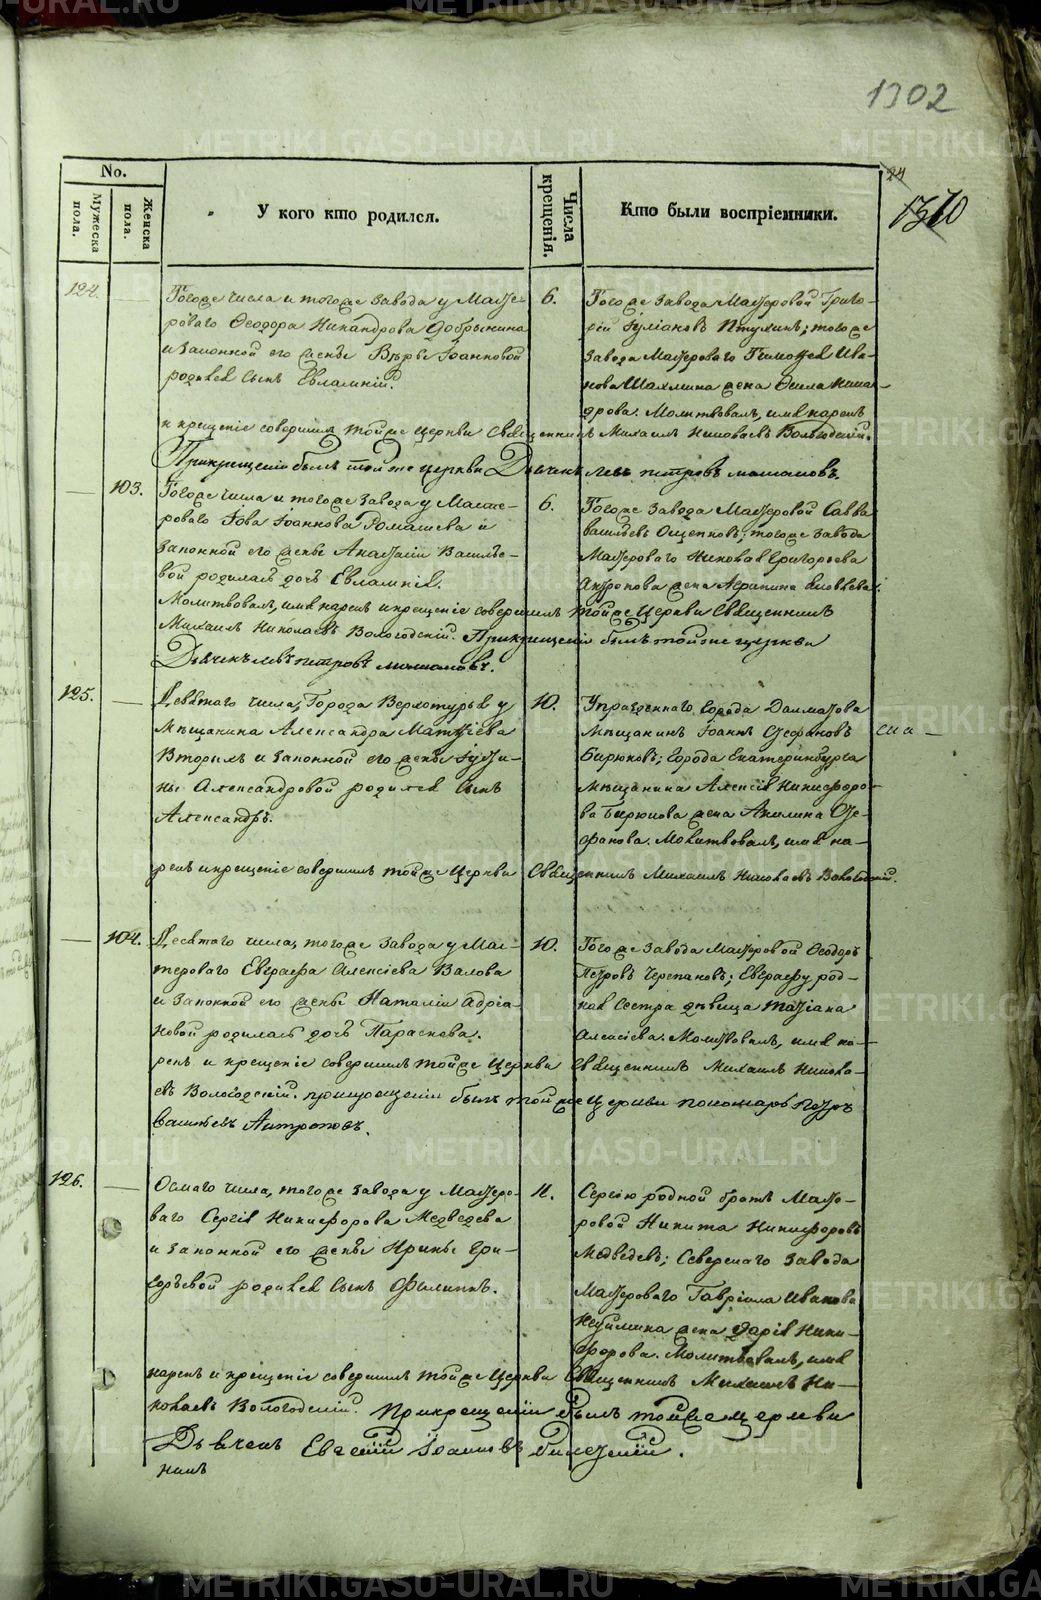 1302
24
1370
No.
Мужеска пола.
Женска пола.
У кого кто родился.
Числа крещенія.
Кто были воспріемники.
124.
Тогоже числа и тогоже завода у Масте-
роваго Ѳеодора Никандрова Добрынина
и законной его женѣ Вѣрѣ Іоанновой
родился сынъ Евлампій.
6.
Тогоже завода Мастеровой Григо-
рій Іуліановъ Птухинъ; тогоже
завода Мастероваго Тимоѳея Ива-
нова Шахмина жена Ѳекла Никан-
дрова. Молитвовалъ, имя нарекъ
и крещеніе совершилъ тойже церкви Священникъ Михаилъ Николаевъ Вологодскій.
При крещеніи былъ той же церкви Дьячекъ Левъ Петровъ
103.
Тогоже числа и тогоже завода у Масте-
роваго Іова Іоаннова Ромашева и
законной его женѣ Анастасіи Василье-
вой родилась дочь Евлампія.
6.
Тогоже завода Мастеровой Савва
Васильевъ Ощепковъ; тогоже завода
Мастероваго Николая Григорьева
Антропова жена Агрипина Яковлева.
Молитвовалъ, имя нарекъ и крещеніе совершилъ тойже Церкви Священникъ
Михаилъ Николаевъ Вологодскій. При крещеніи былъ тойже церкви
Дьячекъ Левъ Петровъ
125.
Девятаго числа, Города Верхотурья у
Мѣщанина Александра Матѳіева
Вторыхъ и законной его женѣ Іусти-
ны Александровой родился сынъ
Александръ.
10.
Упраздненнаго города Далматова
Мѣщанинъ Іоаннъ Стефановъ
Бирюковъ; города Екатеринбурга
мѣщанина Алексія Никифоро-
ва Бирюкова жена Акилина Сте-
фанова. Молитвовалъ, имя на-
рекъ и крещеніе совершилъ тойже Церкви Священникъ Михаилъ Николаевъ Вологодскій.
104.
Десятаго числа, тогоже завода у Мас-
тероваго Евграфа Алексіева Валова
и законной его женѣ Наталіи Адріа-
новой родилась дочь Параскева.
10.
Тогоже завода Мастеровой Ѳеодоръ
Петровъ Черепановъ; Евграфу род-
ная сестра дѣвица Татіана
Алексіева. Молитвовалъ, имя на-
рекъ и крещеніе совершилъ тойже Церкви Священникъ Михаилъ Никола-
евъ Вологодскій. При крещеніи былъ тойже Церкви пономарь Петръ
Васильевъ Антроповъ.
126.
Осмаго числа, тогоже завода у Мастеро-
ваго Сергія Никифорова Медведева
и законной его женѣ Иринѣ Гри-
горьевой родился сынъ Филиппъ.
11.
Сергію родной братъ Масте-
ровой Никита Никифоровъ
Медведевъ; Северскаго завода
Мастероваго Гавріила Иванова
жена Дарія Ники-
форова. Молитвовалъ, имя
нарекъ и крещеніе совершилъ тойже Церкви Священникъ Михаилъ Ни-
колаевъ Вологодскій. При крещеніи былъ тойже церкви
Дьячекъ Евгеній Іоанновъ